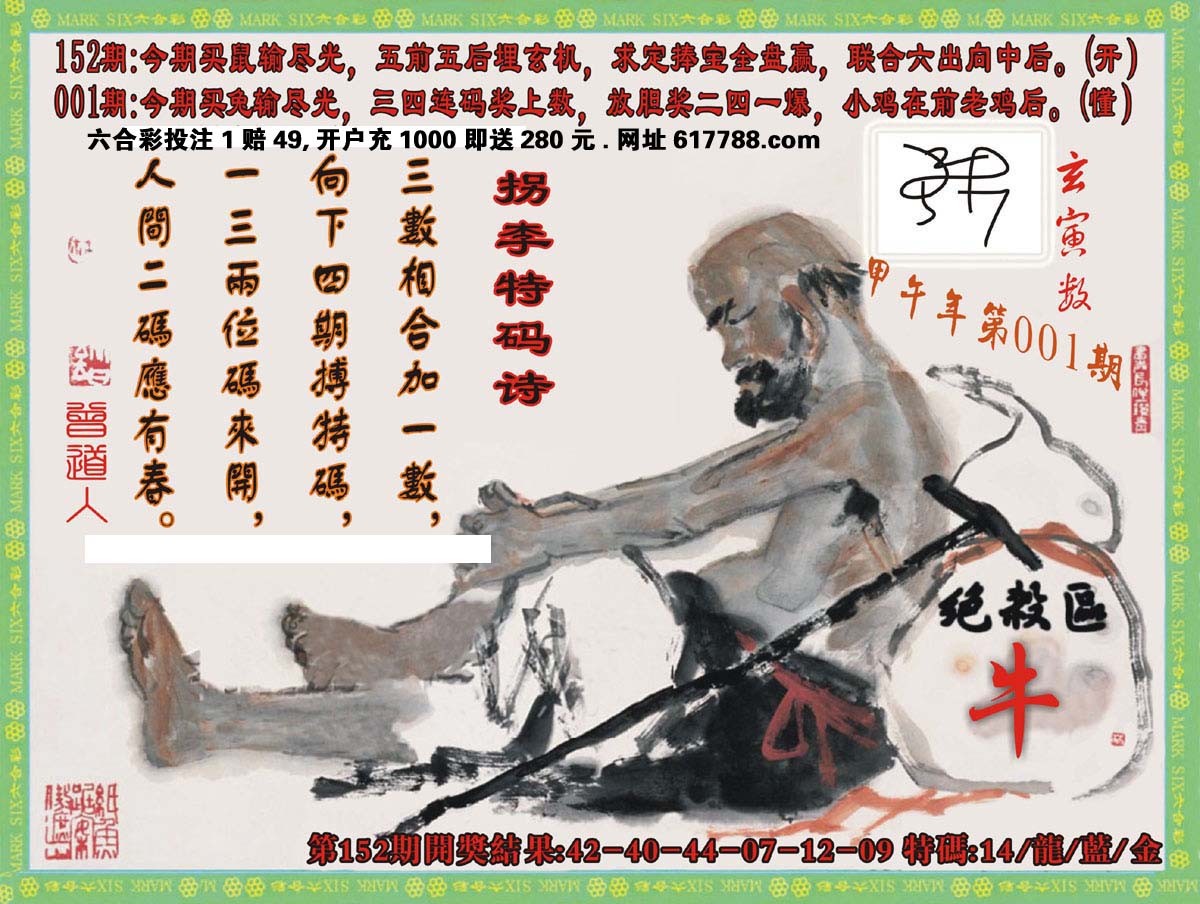 MARK SIX六合彩
152期:今期买鼠输尽光，五前五后埋玄机，求定捧宝全盘赢，联合六出向中后。(开)
001期:今期买兔输尽光，三四连码奖上数，放胆奖二四一爆，小鸡在前老鸡后。(懂)
六合彩投注 1 赔 49, 开户充 1000 即送 280 元 . 网址 617788.com
玄寅数
甲午年第001期
拐李特码诗
三數相合加一數，
向下四期搏特碼，
一三兩位碼來開，
人間二碼應有春。
曾道人
绝殺區
牛
第152期開獎結果:42-40-44-07-12-09 特碼:14/龍/藍/金